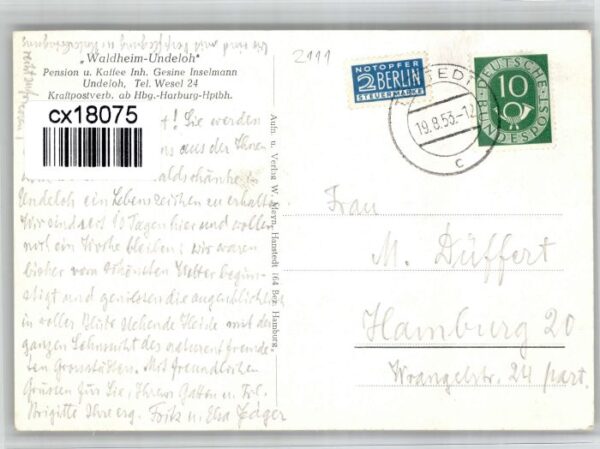 „Waldheim-Undeloh"
Pension u. Kaffee Inh. Gesine Inselmann
Undeloh, Tel. Wesel 24
Kraftpostverb. ab Hbg.-Harburg-Hptbh.
cx18075
! Sie werden
aus der Ihnen
Undeloh ein Lebenszeichen zu erhalten
Wir sind seit 10 Tagen hier und wollen
noch ein Woche bleiben; wir waren
bisher vom schönsten Wetter begün-
stigt und genießen die augenblicklich
in voller Blüte stehende Heide mit der
ganzen Sehnsucht des
ten Grosstädters. Mit freundlichen
Grüssen für Sie, Ihrem Gatten u. Frl.
Brigitte Ihre erg. Fritz u. Elsa Jäger
Aufn. u. Verlag W. Meyn, Hanstedt 164 Bez. Hamburg.
2111
NOTOPFER
2 BERLIN
STEUERMARKE
STEDT
19.8.53.-12
c
DEUTSCHE
BUNDESPOST
10
Frau
M. Düffert
Hamburg 20
Wrangelstr. 24 part.